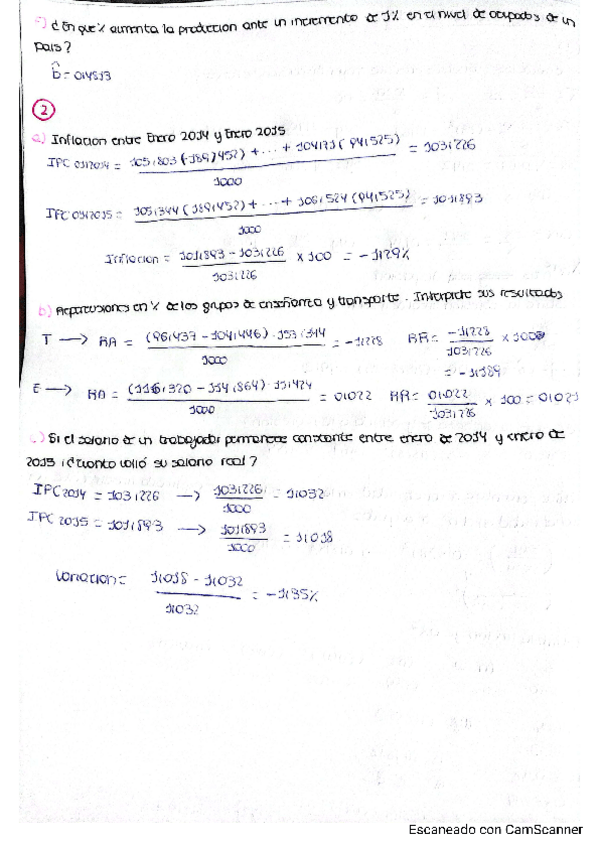 f) ¿En que % aumenta la produccion ante un incremento de 1% en el nivel de ocupados de un
pais?
b̂ = 0'4813
②
a) Inflacion entre Enero 2014 y Enero 2015
IPC 01/2014 = 105'803 (189'452) + ... + 104'171 (94'525) / 1000 = 103'226
IPC 01/2015 = 105'344 (189'452) + ... + 106'524 (94'525) / 1000 = 101'893
Inflacion = 101'893 - 103'226 / 103'226 x 100 = -1'29%
b) Repercusiones en % de los grupos de enseñanza y transporte. Interprete sus resultados
T → RA = (96'437 - 104'446) · 153'344 / 1000 = -1'228 RR = -1'228 / 103'226 x 100
= -1'189
E → RA = (116'320 - 114'864) · 15'424 / 1000 = 0'022 RR = 0'022 / 103'226 x 100 = 0'021
c) Si el salario de un trabajador permanece constante entre enero de 2014 y enero de
2015 ¿Cuanto varió su salario real?
IPC 2014 = 103'226 → 103'226 / 1000 = 1'032
IPC 2015 = 101'893 → 101'893 / 1000 = 1'018
Variacion = 1'018 - 1'032 / 1'032 = -1'35%
Escaneado con CamScanner